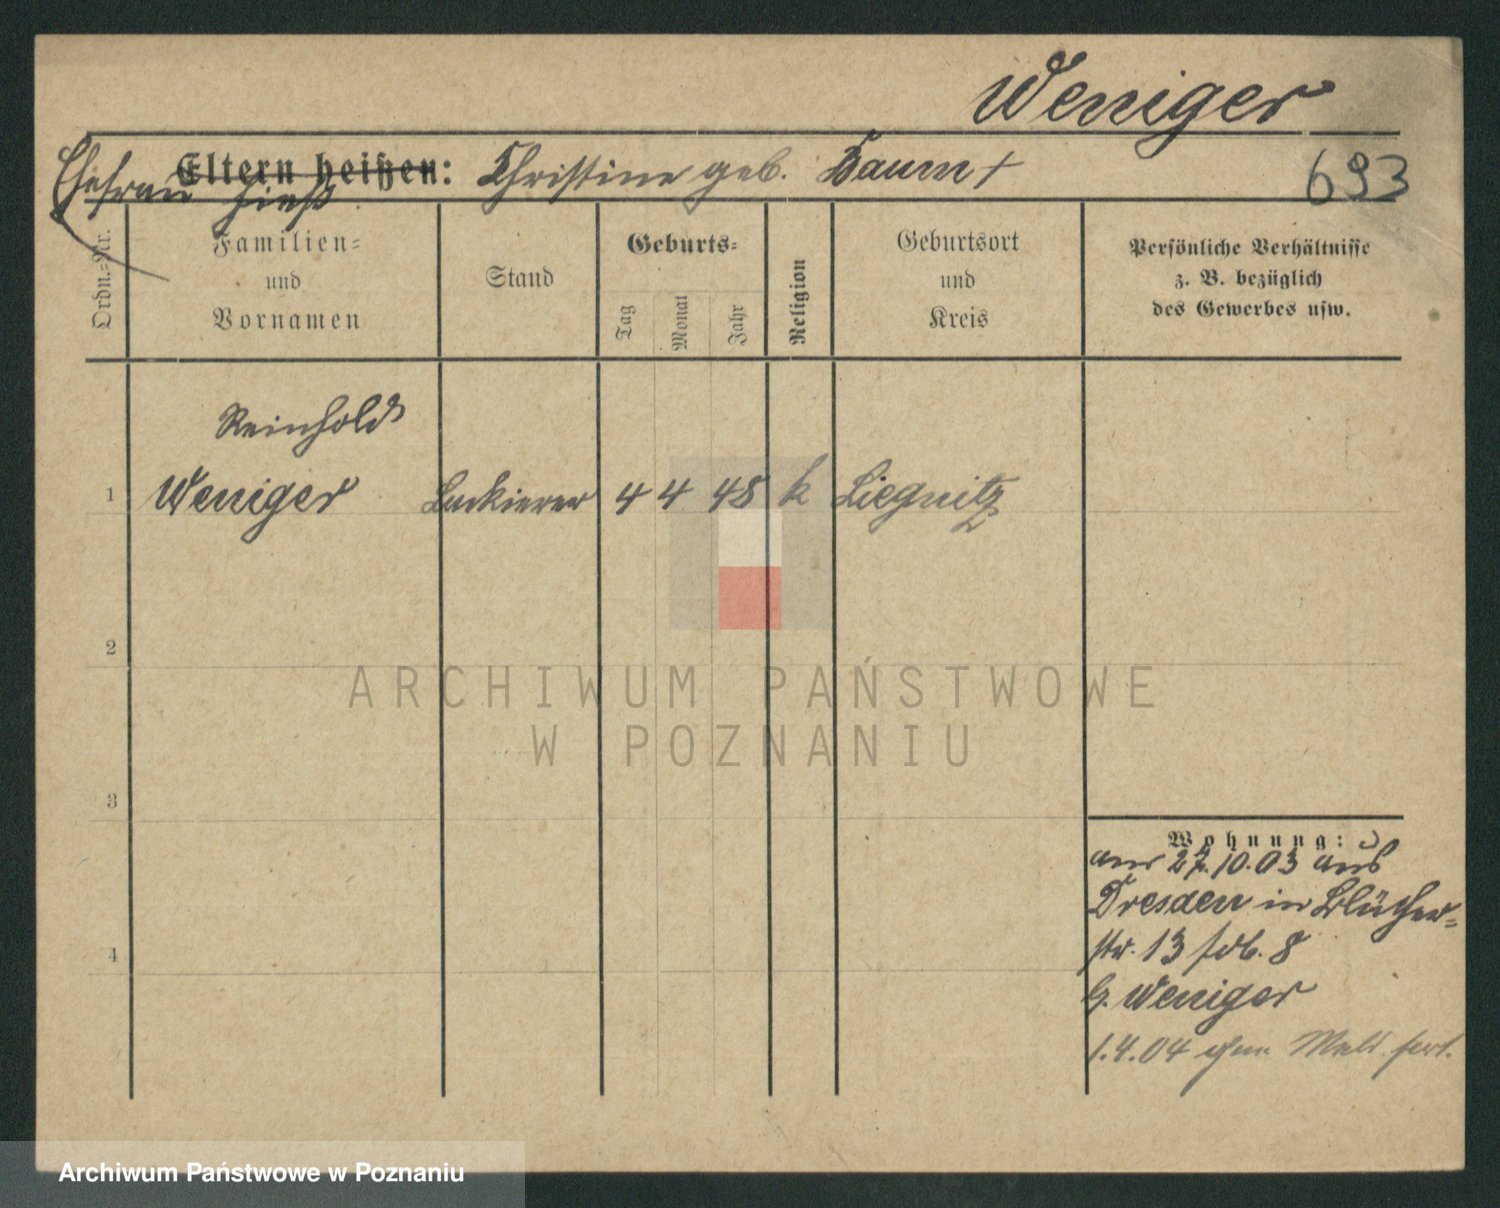 Weniger
693
Eltern heißen: Christine geb. Baum +
Ehefrau hieß
Ordn.-Nr.
Familien-
und
Vornamen
Stand
Geburts-
Tag
Monat
Jahr
Religion
Geburtsort
und
Kreis
Persönliche Verhältnisse
z. B. bezüglich
des Gewerbes usw.
Reinhold
1 Weniger Lackierer 4 4 48 k Liegnitz
2
3
4
Wohnung:
am 27.10.03 aus
Dresden in Blücher-
str. 13
b. Weniger
1.4.04 ohne Meld. fort.
ARCHIWUM PAŃSTWOWE
W POZNANIU
Archiwum Państwowe w Poznaniu